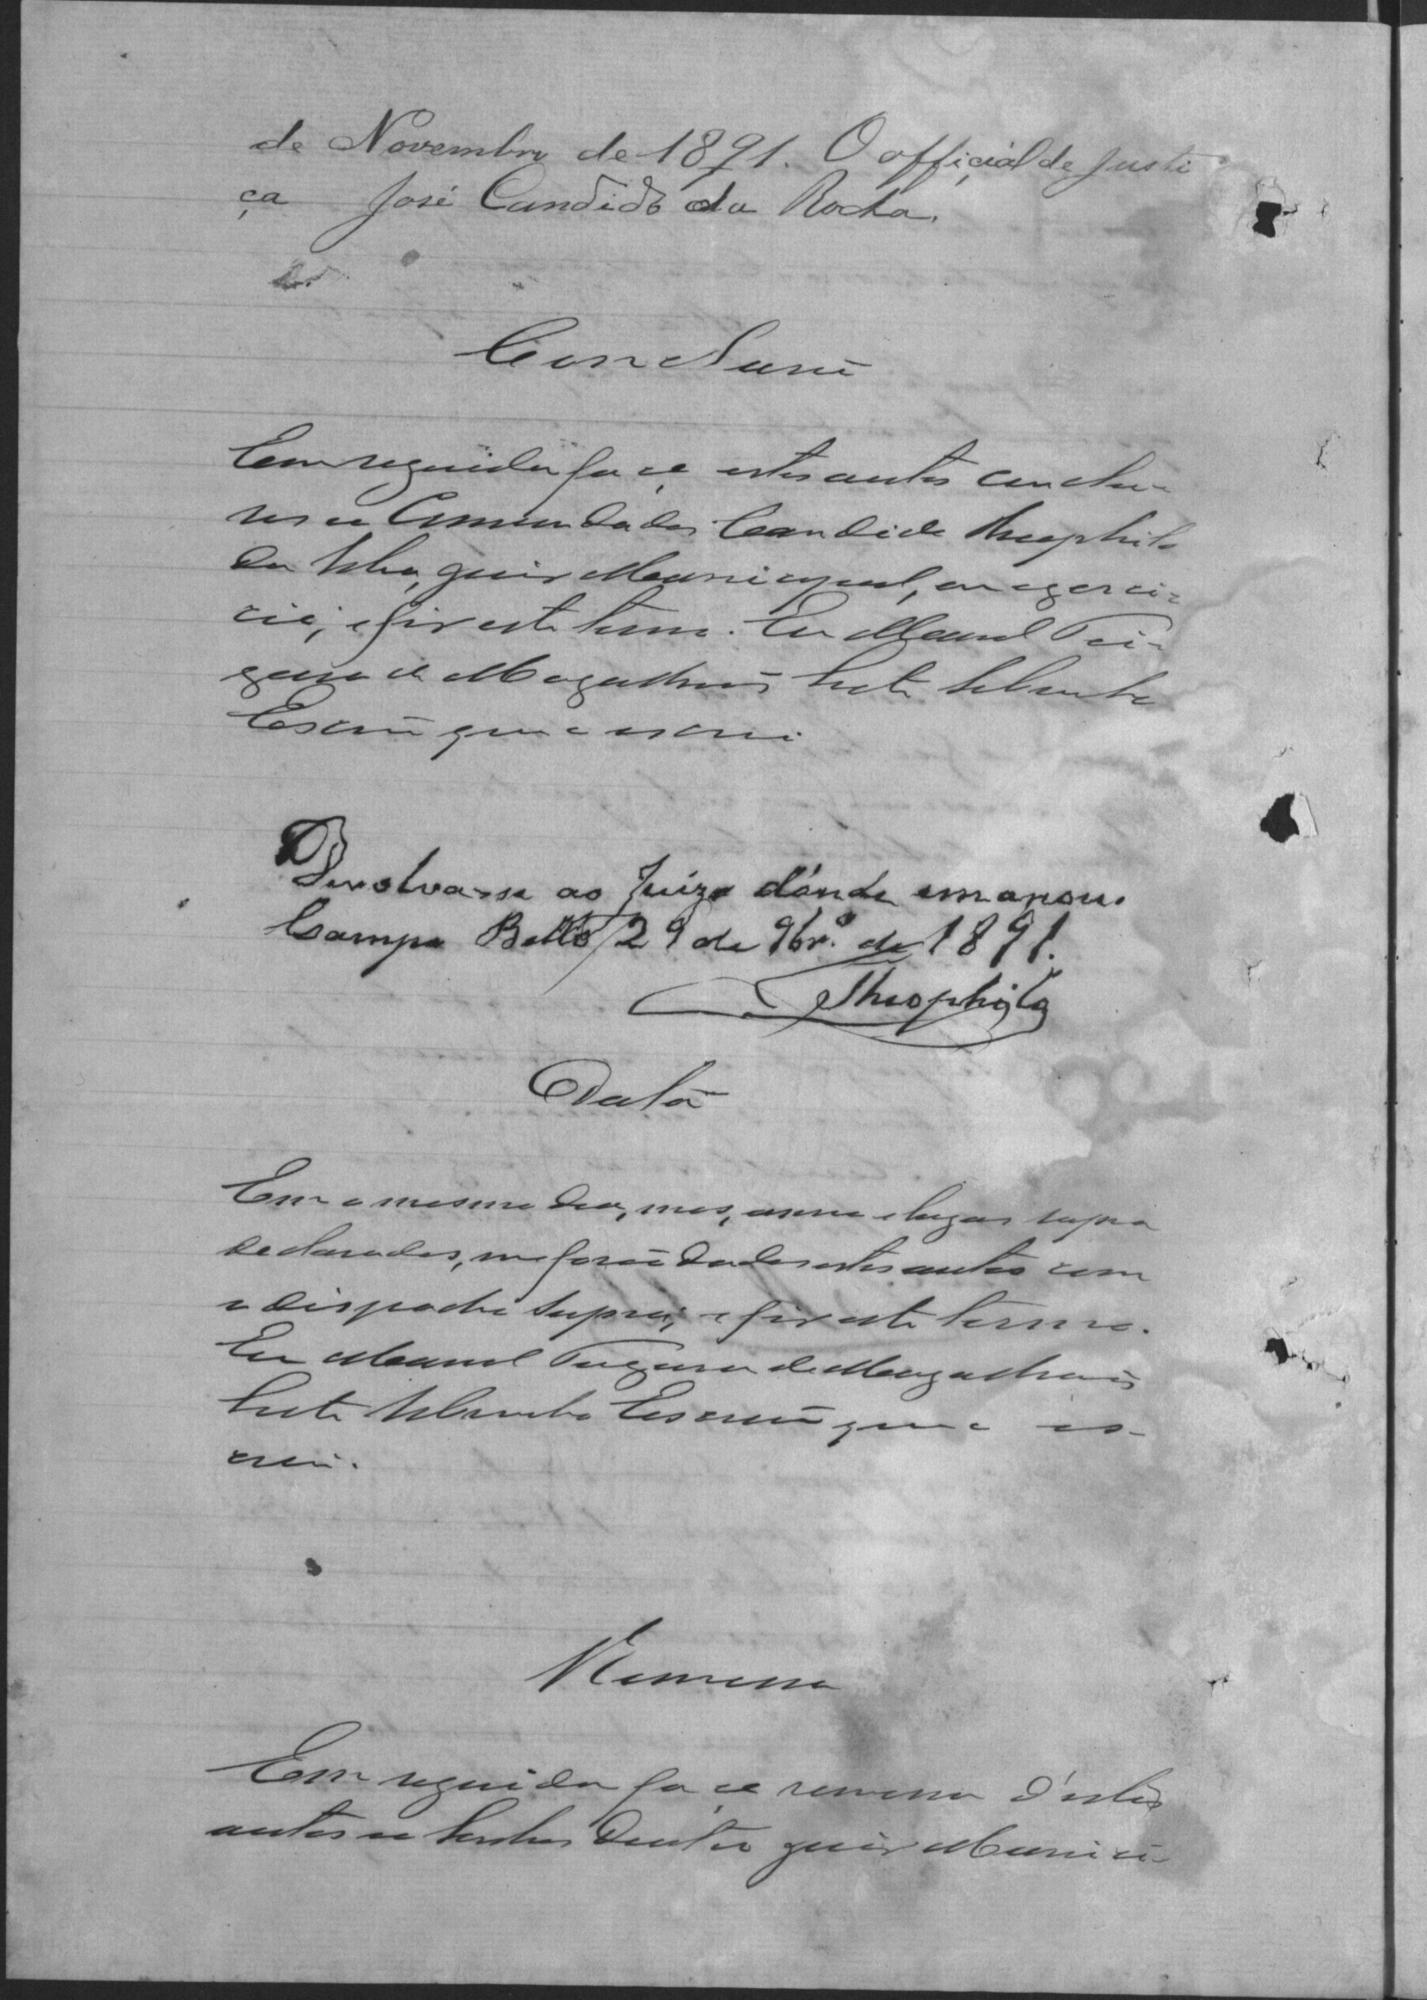 de Novembro de 1891. O official de Justi
ça José Candido da Rocha.
Conclusão
Em seguida faço estes autos conclu-
sos ao Commendador Candido Theophilo
da Silva, juiz Municipal, em exerci-
cio; e fiz este termo. Eu Manoel
de Magalhães
Escrivão que o escrevi
Devolva-se ao Juizo d'onde emanou.
Campo Bello 29 de 9br.º de 1891.
Theophilo
Data
Em o mesmo dia, mes, anno e lugar supra
declarados, me forão dados estes autos com
o dispacho supra; e fiz este termo.
Eu Manoel de Magalhães
Escrivão que o es-
crevi.
Remessa
Em seguida faço remessa d'estes
autos ao Doutor juiz Munici-